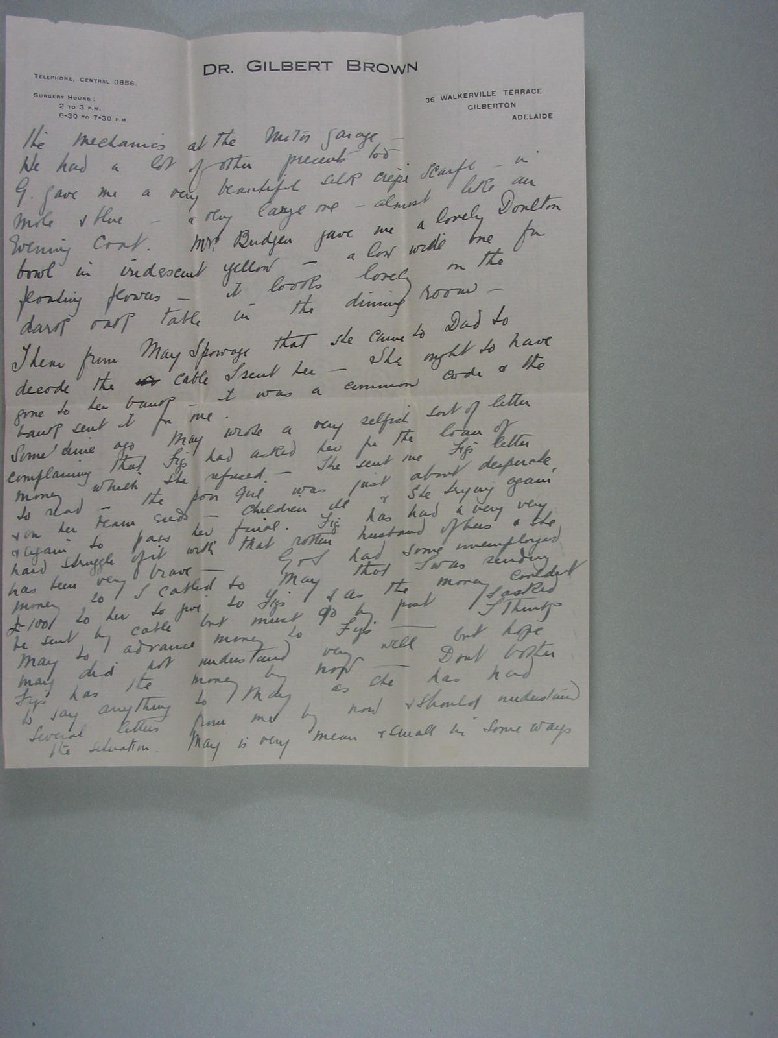 DR. GILBERT BROWN
TELEPHONE, CENTRAL 1886.
SURGERY HOURS:
2 TO 3 P.M.
6-30 TO 7-30 P.M.
36 WALKERVILLE TERRACE
GILBERTON
ADELAIDE
the mechanics at the Motor Garage —
We had a lot of other presents too
G. gave me a very beautiful silk crepe scarf — in
mole & blue — a very large one — almost like an
Evening Coat. Mrs. Budgen gave me a lovely Doulton
bowl in iridescent yellow — a low wide one for
floating flowers — it looks lovely on the
dark oak table in the dining room —
I hear from May Sporage that she came to Dad to
decode the cable I sent her — She ought to have
gone to her bank — it was a common code & the
bank sent it for me.
Some time ago May wrote a very selfish sort of letter
complaining that Figs had asked her for the loan of
money which she refused — She sent me Figs letter
to read — the poor girl was just about desperate,
& on her beam ends — children ill & she trying again
& again to pass her final. Figs has had a very very
hard struggle of it with that rotten husband of hers & she
has been very brave — God had some unemployed
money so I cabled to May that I was sending
£100 to her to give to Figs & as the money couldn't
be sent by cable but must go by post I asked
May to advance money to Figs — I think
May did not understand very well — but hope
Figs has the money by now — Dont bother
to say anything to May as she has had
several letters from me by now & should understand
the situation. May is very mean & small in some ways